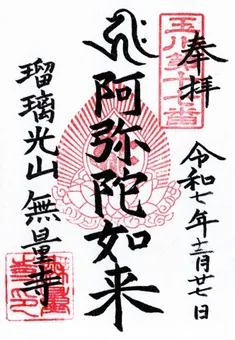 奉拝
玉川第十七番
令和七年十二月廿七日
阿弥陀如来
瑠璃光山 無量寺